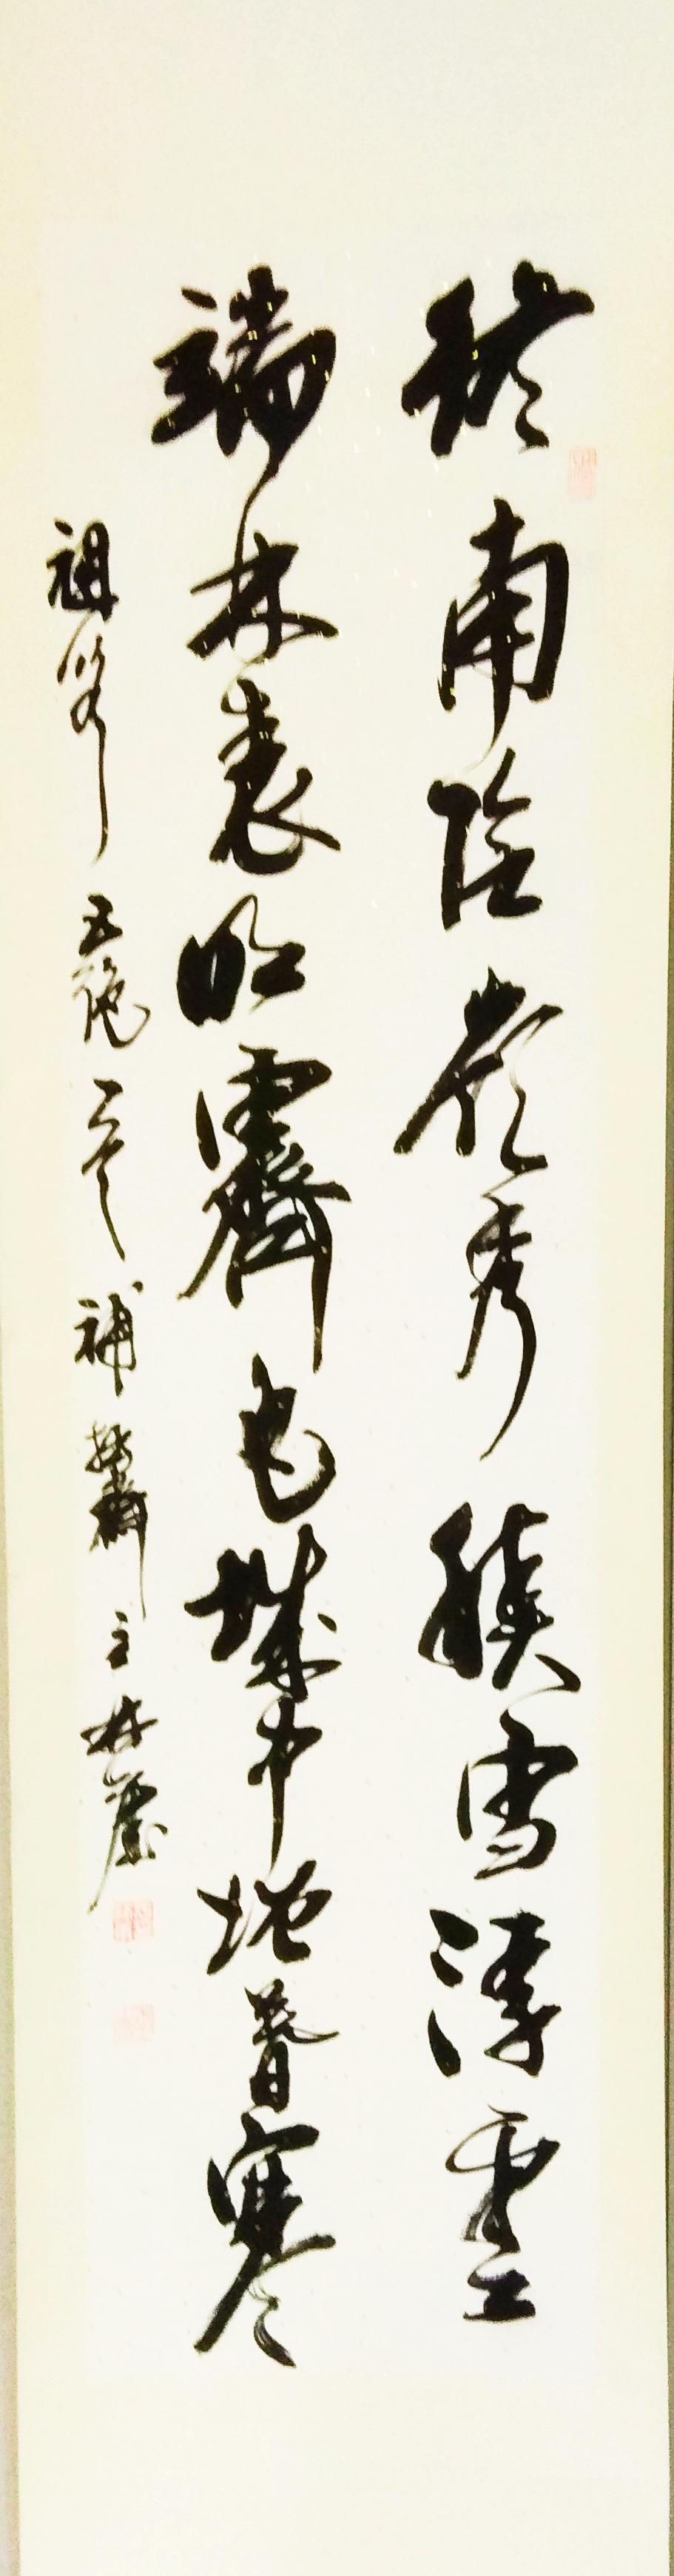 終南陰嶺秀積雪浮雲
端林表明霽色城中增暮寒
祖詠 五絕一首 補齋主林